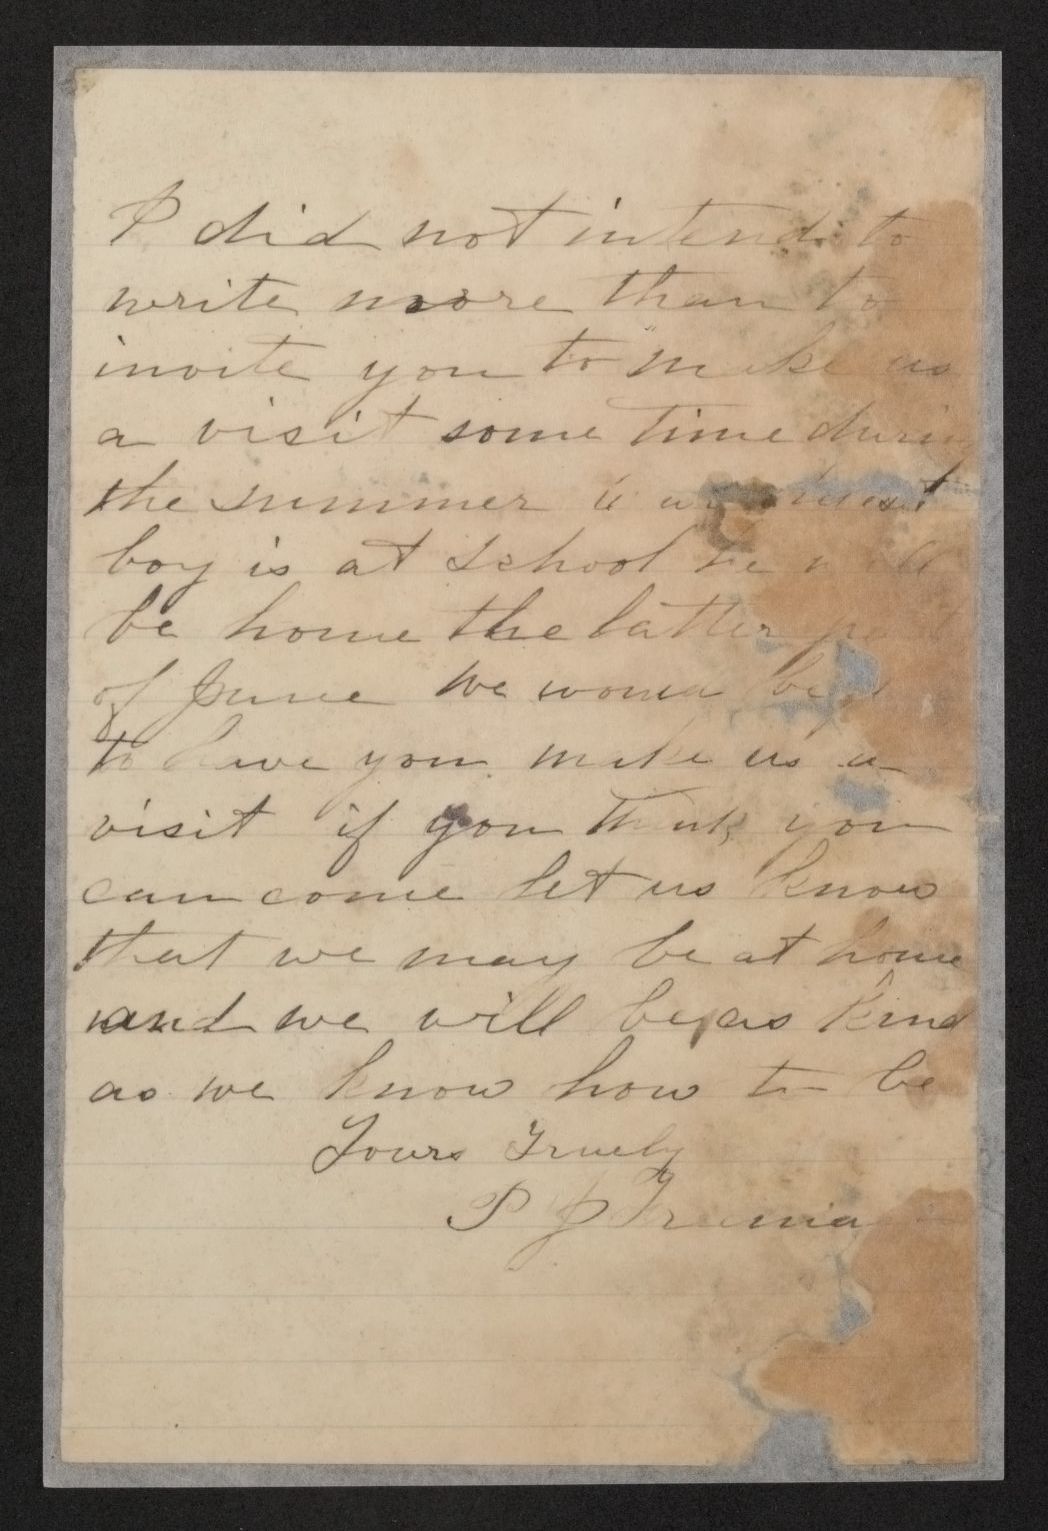 I did not intend to
write more than to
invite you to make us
a visit some time during
the summer
boy is at school he will
be home the latter
of June we would be
to have you make us a
visit if you think you
can come let us know
that we may be at home
and we will be as kind
as we know how to be
Yours Truely
P J